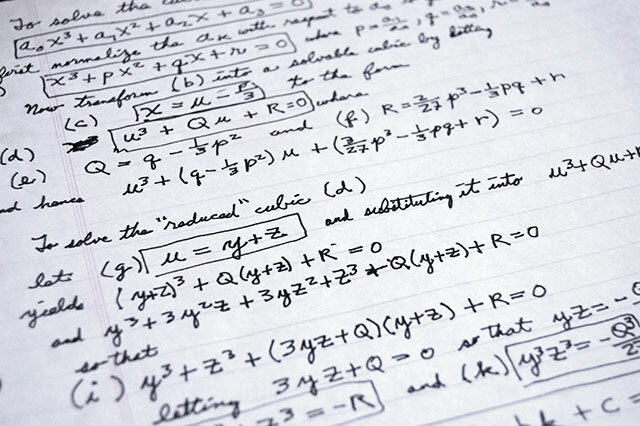 To solve the
a₀x³ + a₁x² + a₂x + a₃ = 0
first normalize the aₖ with respect to
x³ + px² + qx + r = 0 where p = a₁/a₀, q = a₂/a₀, r =
Now transform (b) into a solvable cubic by letting
(c) x = u - p/3 to the form
(d) u³ + Qu + R = 0 where
(e) Q = q - 1/3 p² and (f) R = 2/27 p³ - 1/3 pq + r
and hence u³ + (q - 1/3 p²) u + (2/27 p³ - 1/3 pq + r) = 0
To solve the "reduced" cubic (d)
let (g) u = y + z and substituting it into u³ + Qu +
yields (y+z)³ + Q(y+z) + R = 0
and y³ + 3y²z + 3yz² + z³ + Q(y+z) + R = 0
so that
(i) y³ + z³ + (3yz + Q)(y+z) + R = 0
letting 3yz + Q = 0 so that yz = -
z³ = -R and (k) y³z³ = -Q³/
+ c =